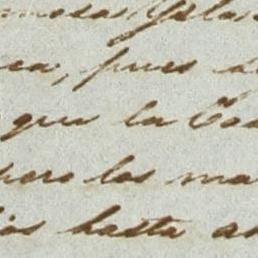 mosas Isla
ca, pues s
que la Cos
pero los ma
ios hasta as